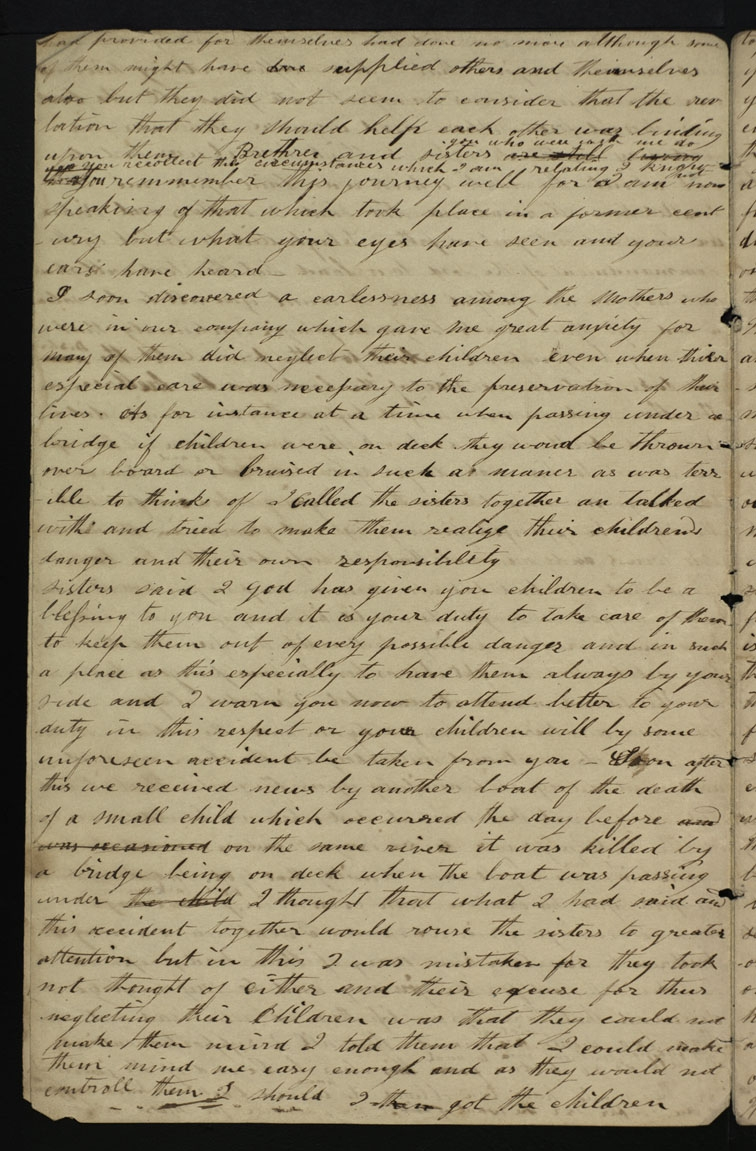 had provided for themselves had done no more although some
of them might have supplied others and themselves
also but they did not seem to consider that the rev
lation that they should help each other was binding
upon them Brethren and sisters you who were with me do
you recollect the circumstances which I am relating I know
you remmember this journey well for I am not now
speaking of that which took place in a former cent
-ury but what your eyes have seen and your
ears have heard—
I soon discovered a carlessness among the Mothers who
were in our company which gave me great anxiety for
many of them did neglect their children even when thier
especial care was necessary to the preservation of their
lives. As for instance at a time when passing under a
bridge if children were on deck they woud be thrown
over board or bruised in such a maner as was terr
-ible to think of I called the sisters together an talked
with and tried to make them realize their children's
danger and their own responsiblety
sisters said I God has given you children to be a
blessing to you and it is your duty to take care of them
to keep them out of every possible danger and in such
a place as this especially to have them always by your
side and I warn you now to attend better to your
duty in this respect or your children will by some
unforeseen accident be taken from you — Soon after
this we received news by another boat of the death
of a small child which occurred the day before and
was occasioned on the same river it was killed by
a bridge being on deck when the boat was passing
under the child I thought that what I had said and
this accident together would rouse the sisters to greater
attention but in this I was mistaken for they took
not thought of either and their excuse for thus
neglecting their Children was that they could not
make them mind I told them that I could make
them mind me easy enough and as they would not
controll them I should I then got the children